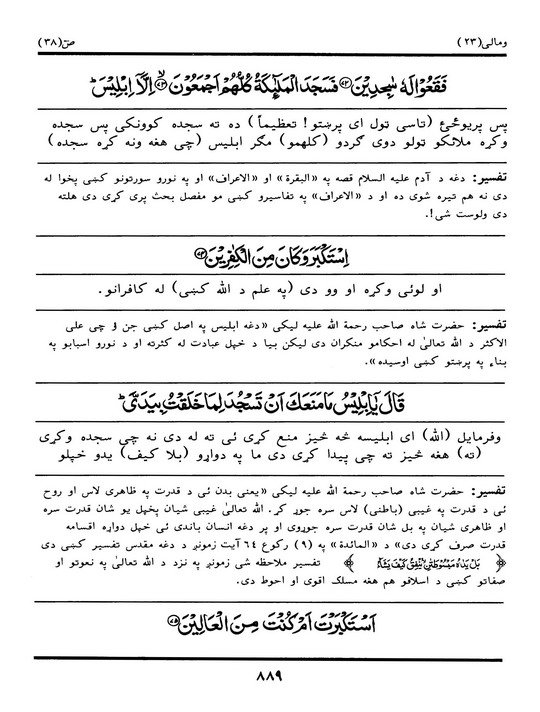 ومالی(۲۳)
صٓ(۳۸)
فَقَعُوْا لَهٗ سٰجِدِيْنَ ﴿۷۲﴾ فَسَجَدَ الْمَلٰٓئِكَةُ كُلُّهُمْ اَجْمَعُوْنَ ﴿۷۳﴾ اِلَّاۤ اِبْلِيْسَ ؕ
پس پریوځئ (تاسی ټول ای پرښتو! تعظیماً) ده ته سجده کوونکی پس سجده
وکړه ملائکو ټولو دوی ګردو (کلهمو) مګر ابلیس (چی هغه ونه کړه سجده)
تفسیر: دغه د آدم علیه السلام قصه په «البقرة» او «الاعراف» او په نورو سورتونو کښی پخوا له
دی نه هم تیره شوی ده او د «الاعراف» په تفاسیرو کښی مو مفصل بحث پری کړی دی هلته
دی ولوست شی!.
اِسْتَكْبَرَ وَكَانَ مِنَ الْكٰفِرِيْنَ ﴿۷۴﴾
او لوئی وکړه او وو دی (په علم د الله کښی) له کافرانو.
تفسیر: حضرت شاه صاحب رحمة الله علیه لیکی «دغه ابلیس په اصل کښی جن ؤ چی علی
الاکثر د الله تعالیٰ له احکامو منکران دی لیکن بیا د خپل عبادت له کثرته او د نورو اسبابو په
بناء په پرښتو کښی اوسیده».
قَالَ يٰۤاِبْلِيْسُ مَا مَنَعَكَ اَنْ تَسْجُدَ لِمَا خَلَقْتُ بِيَدَيَّ ؕ
وفرمایل (الله) ای ابلیسه څه څیز منع کړی ئی ته له دی نه چی سجده وکړی
(ته) هغه څیز ته چی پیدا کړی دی ما په دواړو (بلا کیف) یدو خپلو
تفسیر: حضرت شاه صاحب رحمة الله علیه لیکی «یعنی بدن ئی د قدرت په ظاهری لاس او روح
ئی د قدرت په غیبی (باطنی) لاس سره جوړ کړ. الله تعالیٰ غیبی شیان پخپل یو شان قدرت سره
او ظاهری شیان په بل شان قدرت سره جوړوی او پر دغه انسان باندی ئی خپل دواړه اقسامه
قدرت صرف کړی دی» د «المائدة» په (۹) رکوع ۶۴ آیت زمونږ د دغه مقدس تفسیر کښی دی
﴿ بَلْ يَدٰهُ مَبْسُوْطَتٰنِ يُنْفِقُ كَيْفَ يَشَآءُ ﴾ تفسیر ملاحظه شی زمونږ په نزد د الله تعالیٰ په نعوتو او
صفاتو کښی د اسلافو هم هغه مسلک اقوی او احوط دی.
اَسْتَكْبَرْتَ اَمْ كُنْتَ مِنَ الْعَالِيْنَ ﴿۷۵﴾
۸۸۹